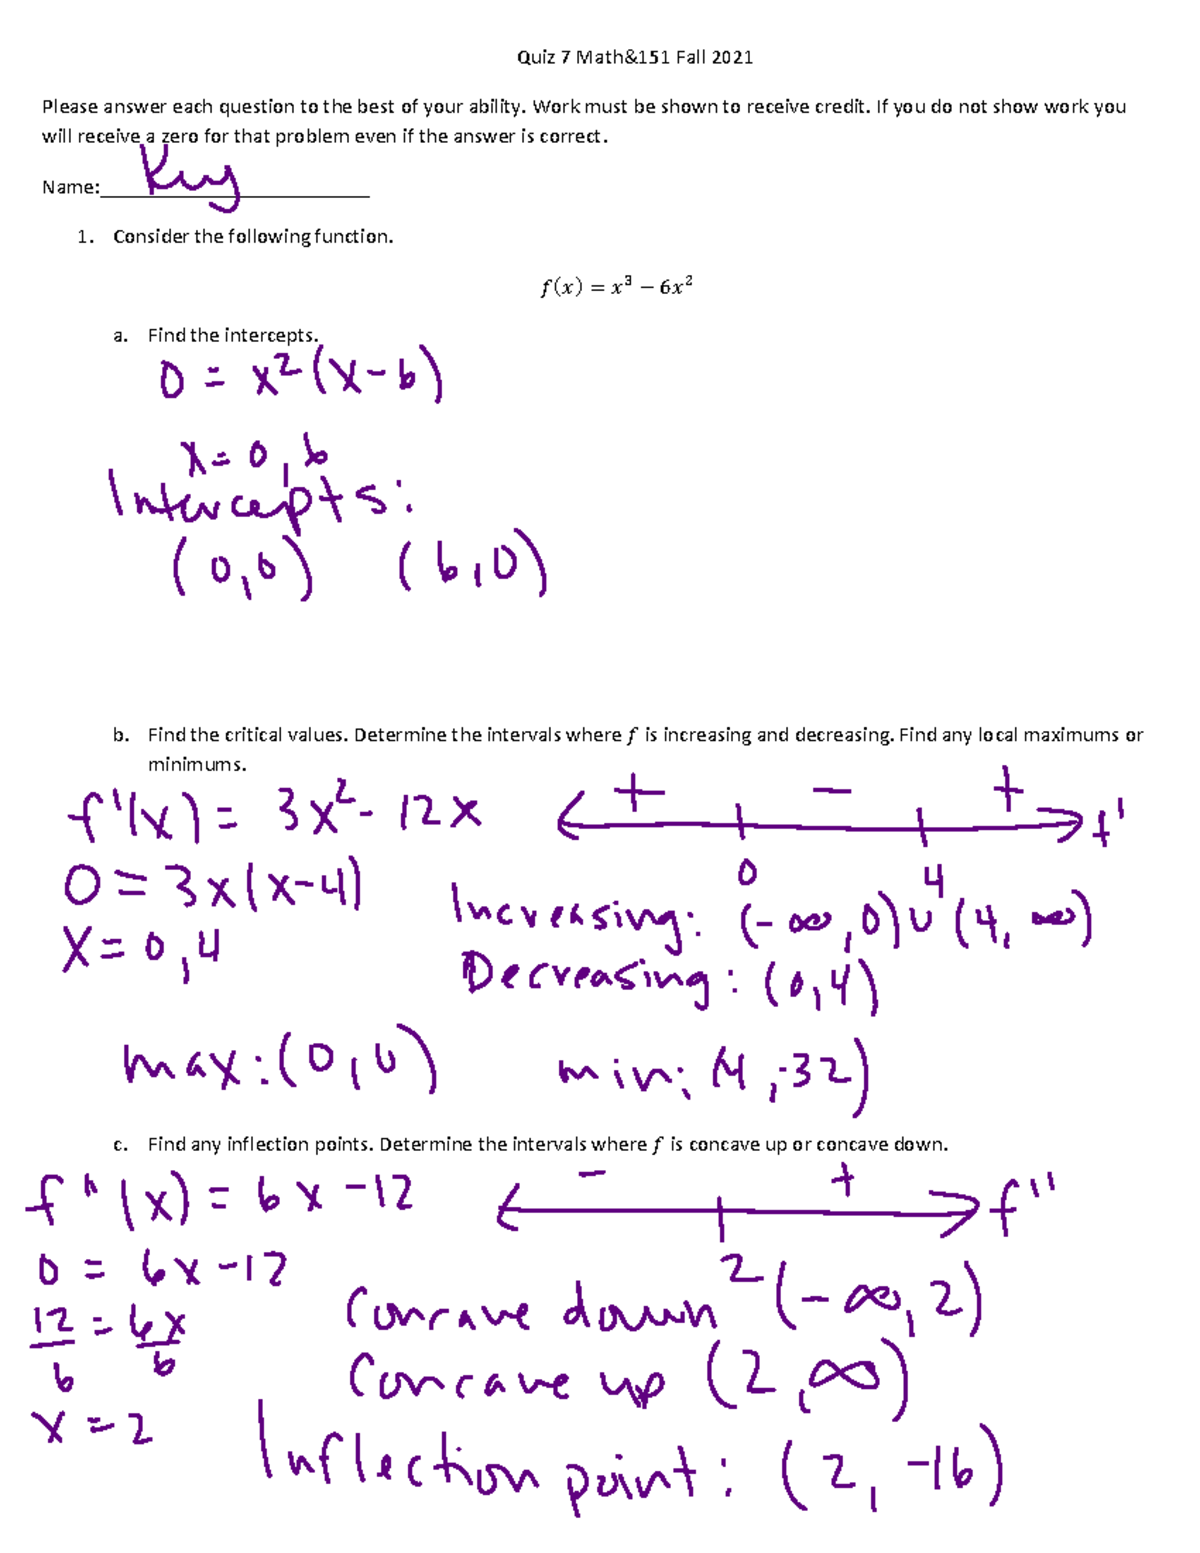 Quiz 7 Math&151 Fall 2021
Please answer each question to the best of your ability. Work must be shown to receive credit. If you do not show work you
will receive a zero for that problem even if the answer is correct.
Name: Key
1. Consider the following function.
f(x) = x³ − 6x²
a. Find the intercepts.
0 = x²(x-6)
x = 0, 6
Intercepts:
(0,0) (6,0)
b. Find the critical values. Determine the intervals where f is increasing and decreasing. Find any local maximums or
minimums.
+ − +
f'(x) = 3x² - 12x
f'
0 4
0 = 3x(x-4)
Increasing: (-∞,0)∪(4,∞)
x = 0,4
Decreasing: (0,4)
max: (0,0) min: (4,-32)
c. Find any inflection points. Determine the intervals where f is concave up or concave down.
− +
f''(x) = 6x - 12
f''
2
0 = 6x - 12
Concave down (-∞,2)
12 = 6x
6 6
Concave up (2,∞)
x = 2
Inflection point: (2,-16)